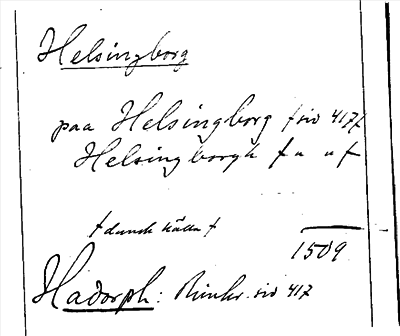 Helsingborg
paa Helsingborg (sid 417)
Helsingborgh (" " )
(dansk källa)
1509
Hadorph: Rimkr. sid 417